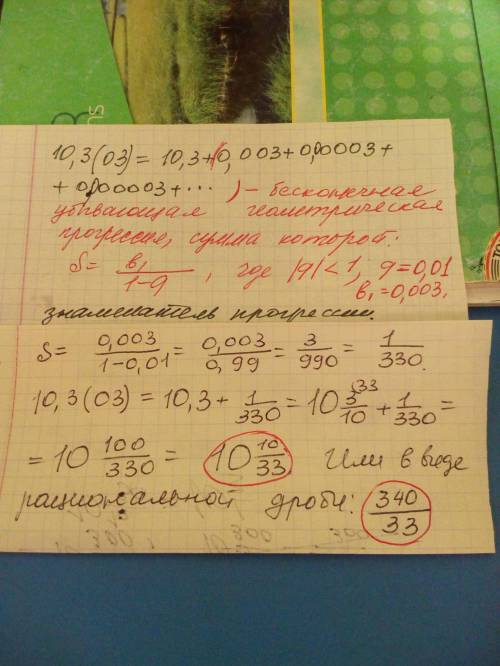 10,3(03) = 10,3+(0,003+0,00003+
+0,00003+...) - бесконечная
убывающая геометрическая
прогрессия, сумма которой:
S = в₁/(1-q), где |q|<1, q=0,01
в₁=0,003,
знаменатель прогрессии.
S = 0,003/(1-0,01) = 0,003/0,99 = 3/990 = 1/330.
10,3(03) = 10,3 + 1/330 = 10 3/10 (33 + 1/330 =
= 10 100/330 = 10 10/33 Или в виде
рациональной дроби: 340/33